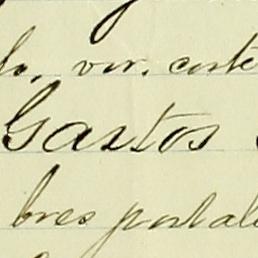 lo, vor. corte
Gastos
bres portale